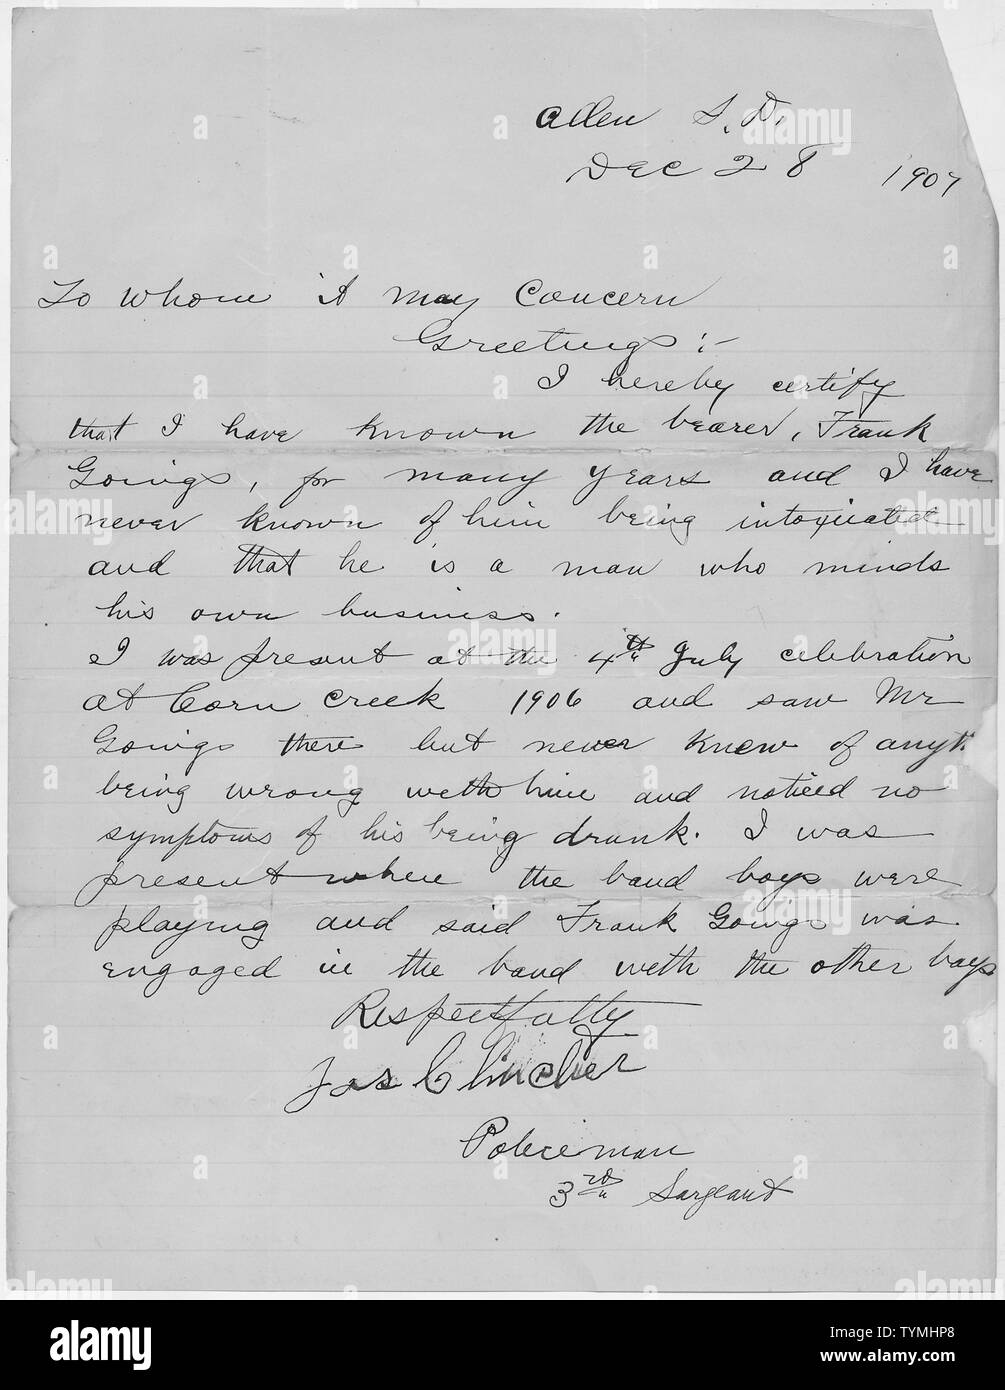 Allen S. D.
Dec 28 1907
To Whom it May Concern
Greetings :-
I hereby certify
that I have known the bearer, Frank
Goings, for many years and I have
never known of him being intoxicated
and that he is a man who minds
his own business.
I was present at the 4th July celebration
at Corn Creek 1906 and saw Mr
Goings there but never knew of anyth
being wrong with him and noticed no
symptoms of his being drunk. I was
present where the band boys were
playing and said Frank Goings was
engaged in the band with the other boys
Respectfully
Jas Clincher
Policeman
3rd Sargeant
alamy
Image ID: TYMHP8
www.alamy.com